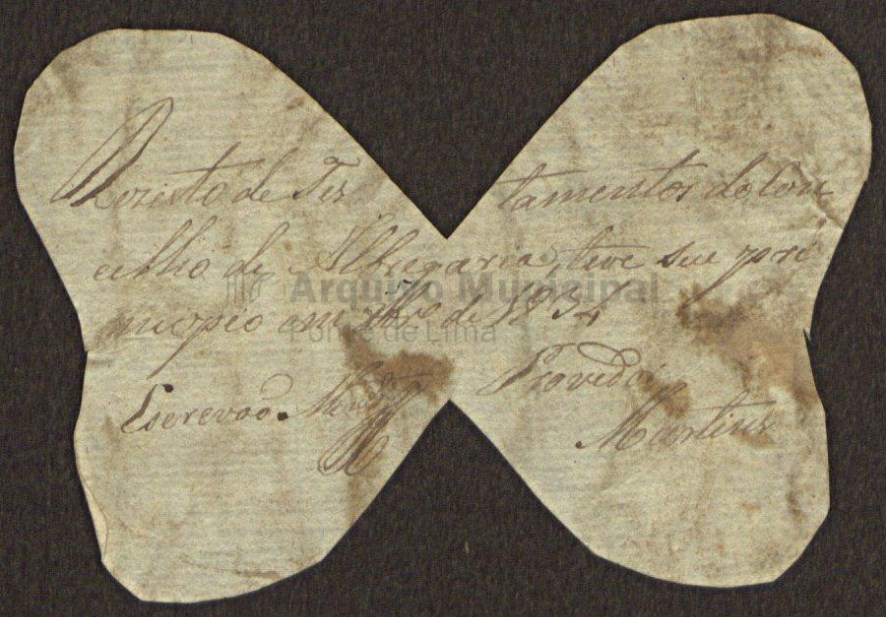 Rezisto de Tes tamentos do Con
celho de Albregaria, teve seu prin
incipio em 7br.o de 1834
Escrevão. Provedor
Martins
Arquivo Municipal
Ponte de Lima